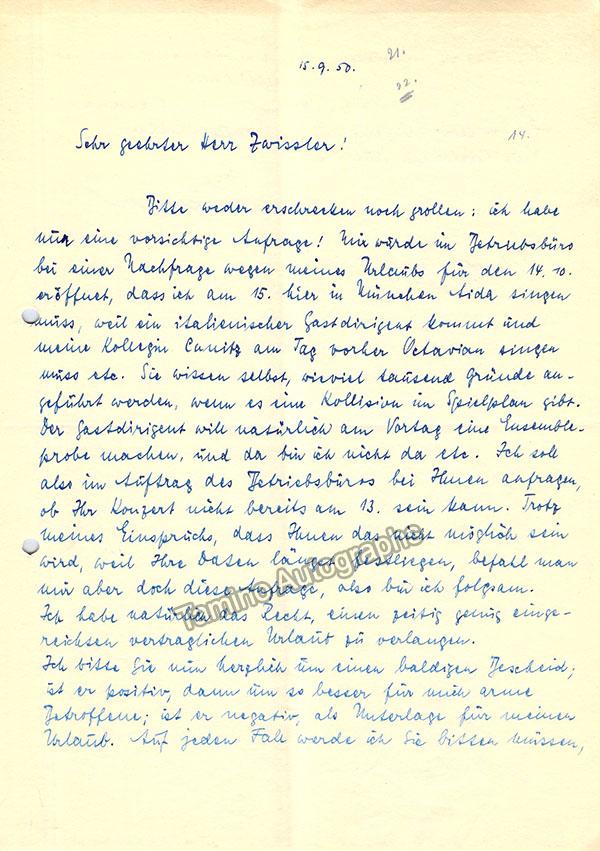 15.9.50.
21.
22.
14.
Sehr geehrter Herr Zwissler!
Bitte weder erschrecken noch grollen: ich habe
nur eine vorsichtige Anfrage! Mir wurde im Betriebsbüro
bei einer Nachfrage wegen meines Urlaubs für den 14.10.
eröffnet, dass ich am 15. hier in München Aida singen
muss, weil ein italienischer Gastdirigent kommt und
meine Kollegin Cunitz am Tag vorher Octavian singen
muss etc. Sie wissen selbst, wieviel tausend Gründe an-
geführt werden, wenn es eine Kollision im Spielplan gibt.
Der Gastdirigent will natürlich am Vortag eine Ensemble-
probe machen, und da bin ich nicht da etc. Ich soll
also im Auftrag des Betriebsbüros bei Ihnen anfragen,
ob Ihr Konzert nicht bereits am 13. sein kann. Trotz
meines Einspruchs, dass Ihnen das nicht möglich sein
wird, weil Ihre Daten längst festliegen, befahl man
mir aber doch diese Anfrage, also bin ich folgsam.
Ich habe natürlich das Recht, einen zeitig genug einge-
reichten vertraglichen Urlaub zu verlangen.
Ich bitte Sie nun herzlich um einen baldigen Bescheid;
ist er positiv, dann um so besser für mich arme
Betroffene; ist er negativ, als Unterlage für meinen
Urlaub. Auf jeden Fall werde ich Sie bitten müssen,
Tamino Autographs